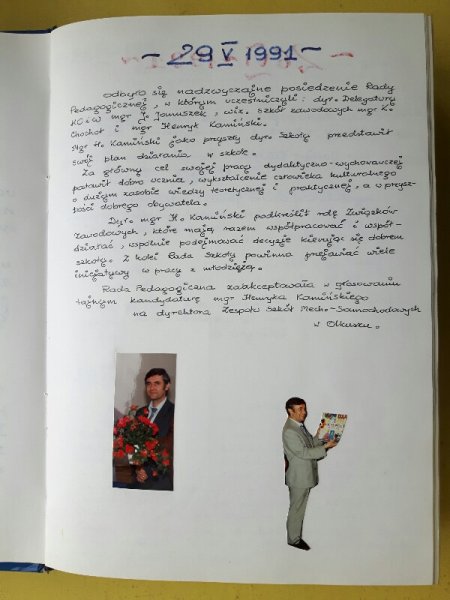 ~ 29 V 1991 ~
odbyło się nadzwyczajne posiedzenie Rady
Pedagogicznej, w którym uczestniczyli: dyr. Delegatury
KOiW mgr J. Januszek, wiz. szkół zawodowych mgr K.
Chochół i mgr Henryk Kamiński.
Mgr H. Kamiński jako przyszły dyr. szkoły przedstawił
swój plan działania w szkole.
Za główny cel swojej pracy dydaktyczno-wychowawczej
postawił dobro ucznia, wykształcenie człowieka kulturalnego
o dużym zasobie wiedzy teoretycznej i praktycznej, a w przysz-
łości dobrego obywatela.
Dyr. mgr H. Kamiński podkreślił rolę Związków
Zawodowych, które mają razem współpracować i współ-
działać, wspólnie podejmować decyzje kierując się dobrem
szkoły. Z kolei Rada Szkoły powinna przejawiać wiele
inicjatywy w pracy z młodzieżą.
Rada Pedagogiczna zaakceptowała w głosowaniu
tajnym kandydaturę mgr Henryka Kamińskiego
na dyrektora Zespołu Szkół Mech.-Samochodowych
w Olkuszu.